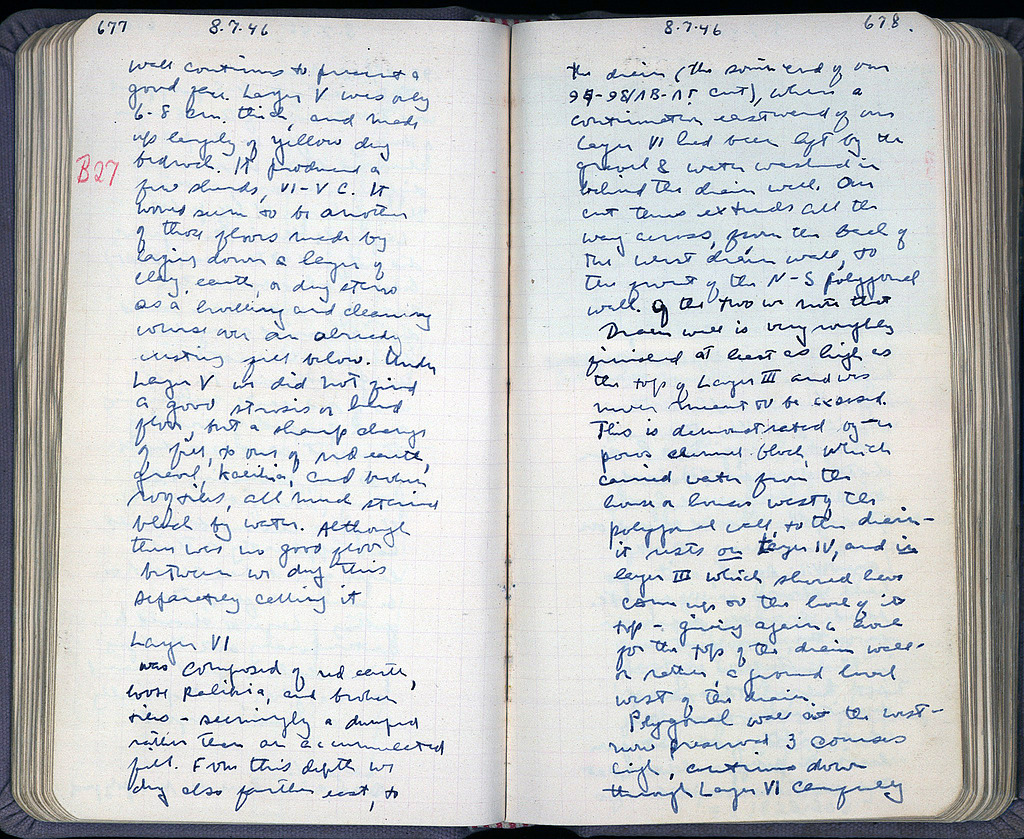 677 8.7.46
wall continues to present a
good face. Layer V was only
6-8 cm. thick, and made
up largely of yellow dug
bedrock. It produced a
B27
few sherds, VI-V C. It
would seem to be another
of those floors made by
laying down a layer of
clay, earth, or dug stereo
as a levelling and cleaning
course over an already
existing fill below. Under
Layer V we did not find
a good strosis or hard
floor, but a sharp change
of fill, to one of red earth,
gravel, kalibia, and broken
rooftiles, all much stained
black by water. Although
there was no good floor
between we dug this
separately calling it
Layer VI
was composed of red earth,
loose kalibia, and broken
tiles - seemingly a dumped
rather than an accumulated
fill. From this depth we
dug also farther east, to
8.7.46 678.
the drain (the south end of our
97-98/ΛΒ-ΛΓ cut), where a
continuation eastward of our
Layer VI had been left by the
gravel & water washed in
behind the drain wall. Our
cut thus extends all the
way across, from the back of
the west drain wall, to
the front of the N-S polygonal
wall. Of the two we note that
Drain wall is very roughly
finished at least as high as
the top of Layer III and was
never meant to be exposed.
This is demonstrated by a
poros channel block, which
carried water from the
house or houses west of the
polygonal wall, to the drain -
it rests on Layer IV, and in
layer III which should have
come up to the level of its
top - giving again a level
for the top of the drain wall -
or rather, a ground level
west of the drain.
Polygonal wall at the west -
now preserved 3 courses
high, continues down
through Layer VI